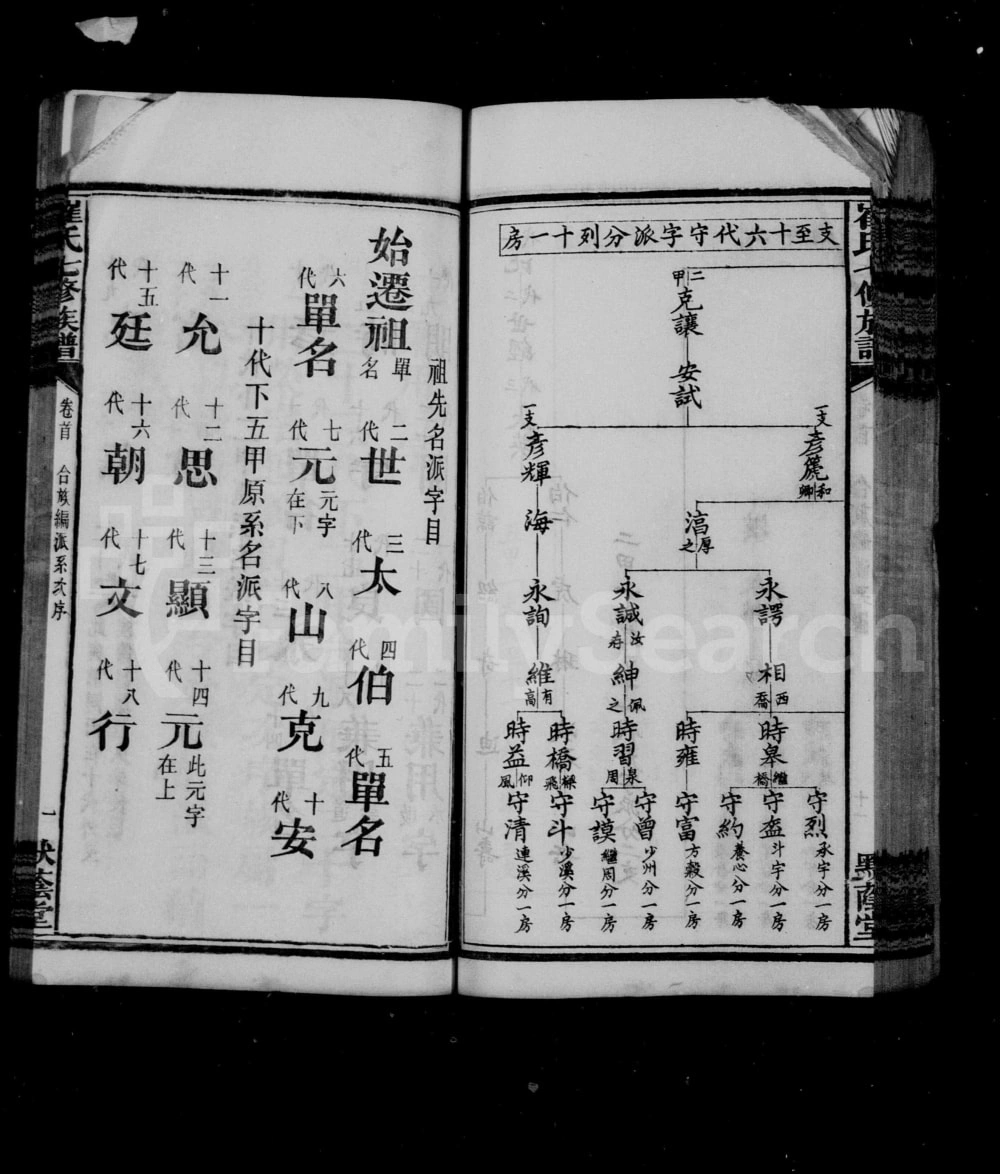 支至十六代守字派分列十一房
二甲
克讓
安試
一支
彥儷
和卿
一支
彥輝
滈
厚之
海
永諤
永誠
汝存
永詢
相
西喬
紳
佩之
維
有高
時皋
繼橋
時雍
時習
泉周
時橋
樑飛
時益
仰風
守烈
承宇分一房
守盔
斗宇分一房
守約
養心分一房
守富
方穀分一房
守曾
少州分一房
守謨
繼周分一房
守斗
少溪分一房
守清
連溪分一房
祖先名派字目
始遷祖單名
二代世
三代太
四代伯
五代單名
六代單名
七代元元字在下
八代山
九代克
十代安
十代下五甲原系名派字目
十一代允
十二代思
十三代顯
十四代元此元字在上
十五代廷
十六代朝
十七代文
十八代行
氏七修族譜
卷首
合族編派系次序
一
蔭堂
FamilySearch